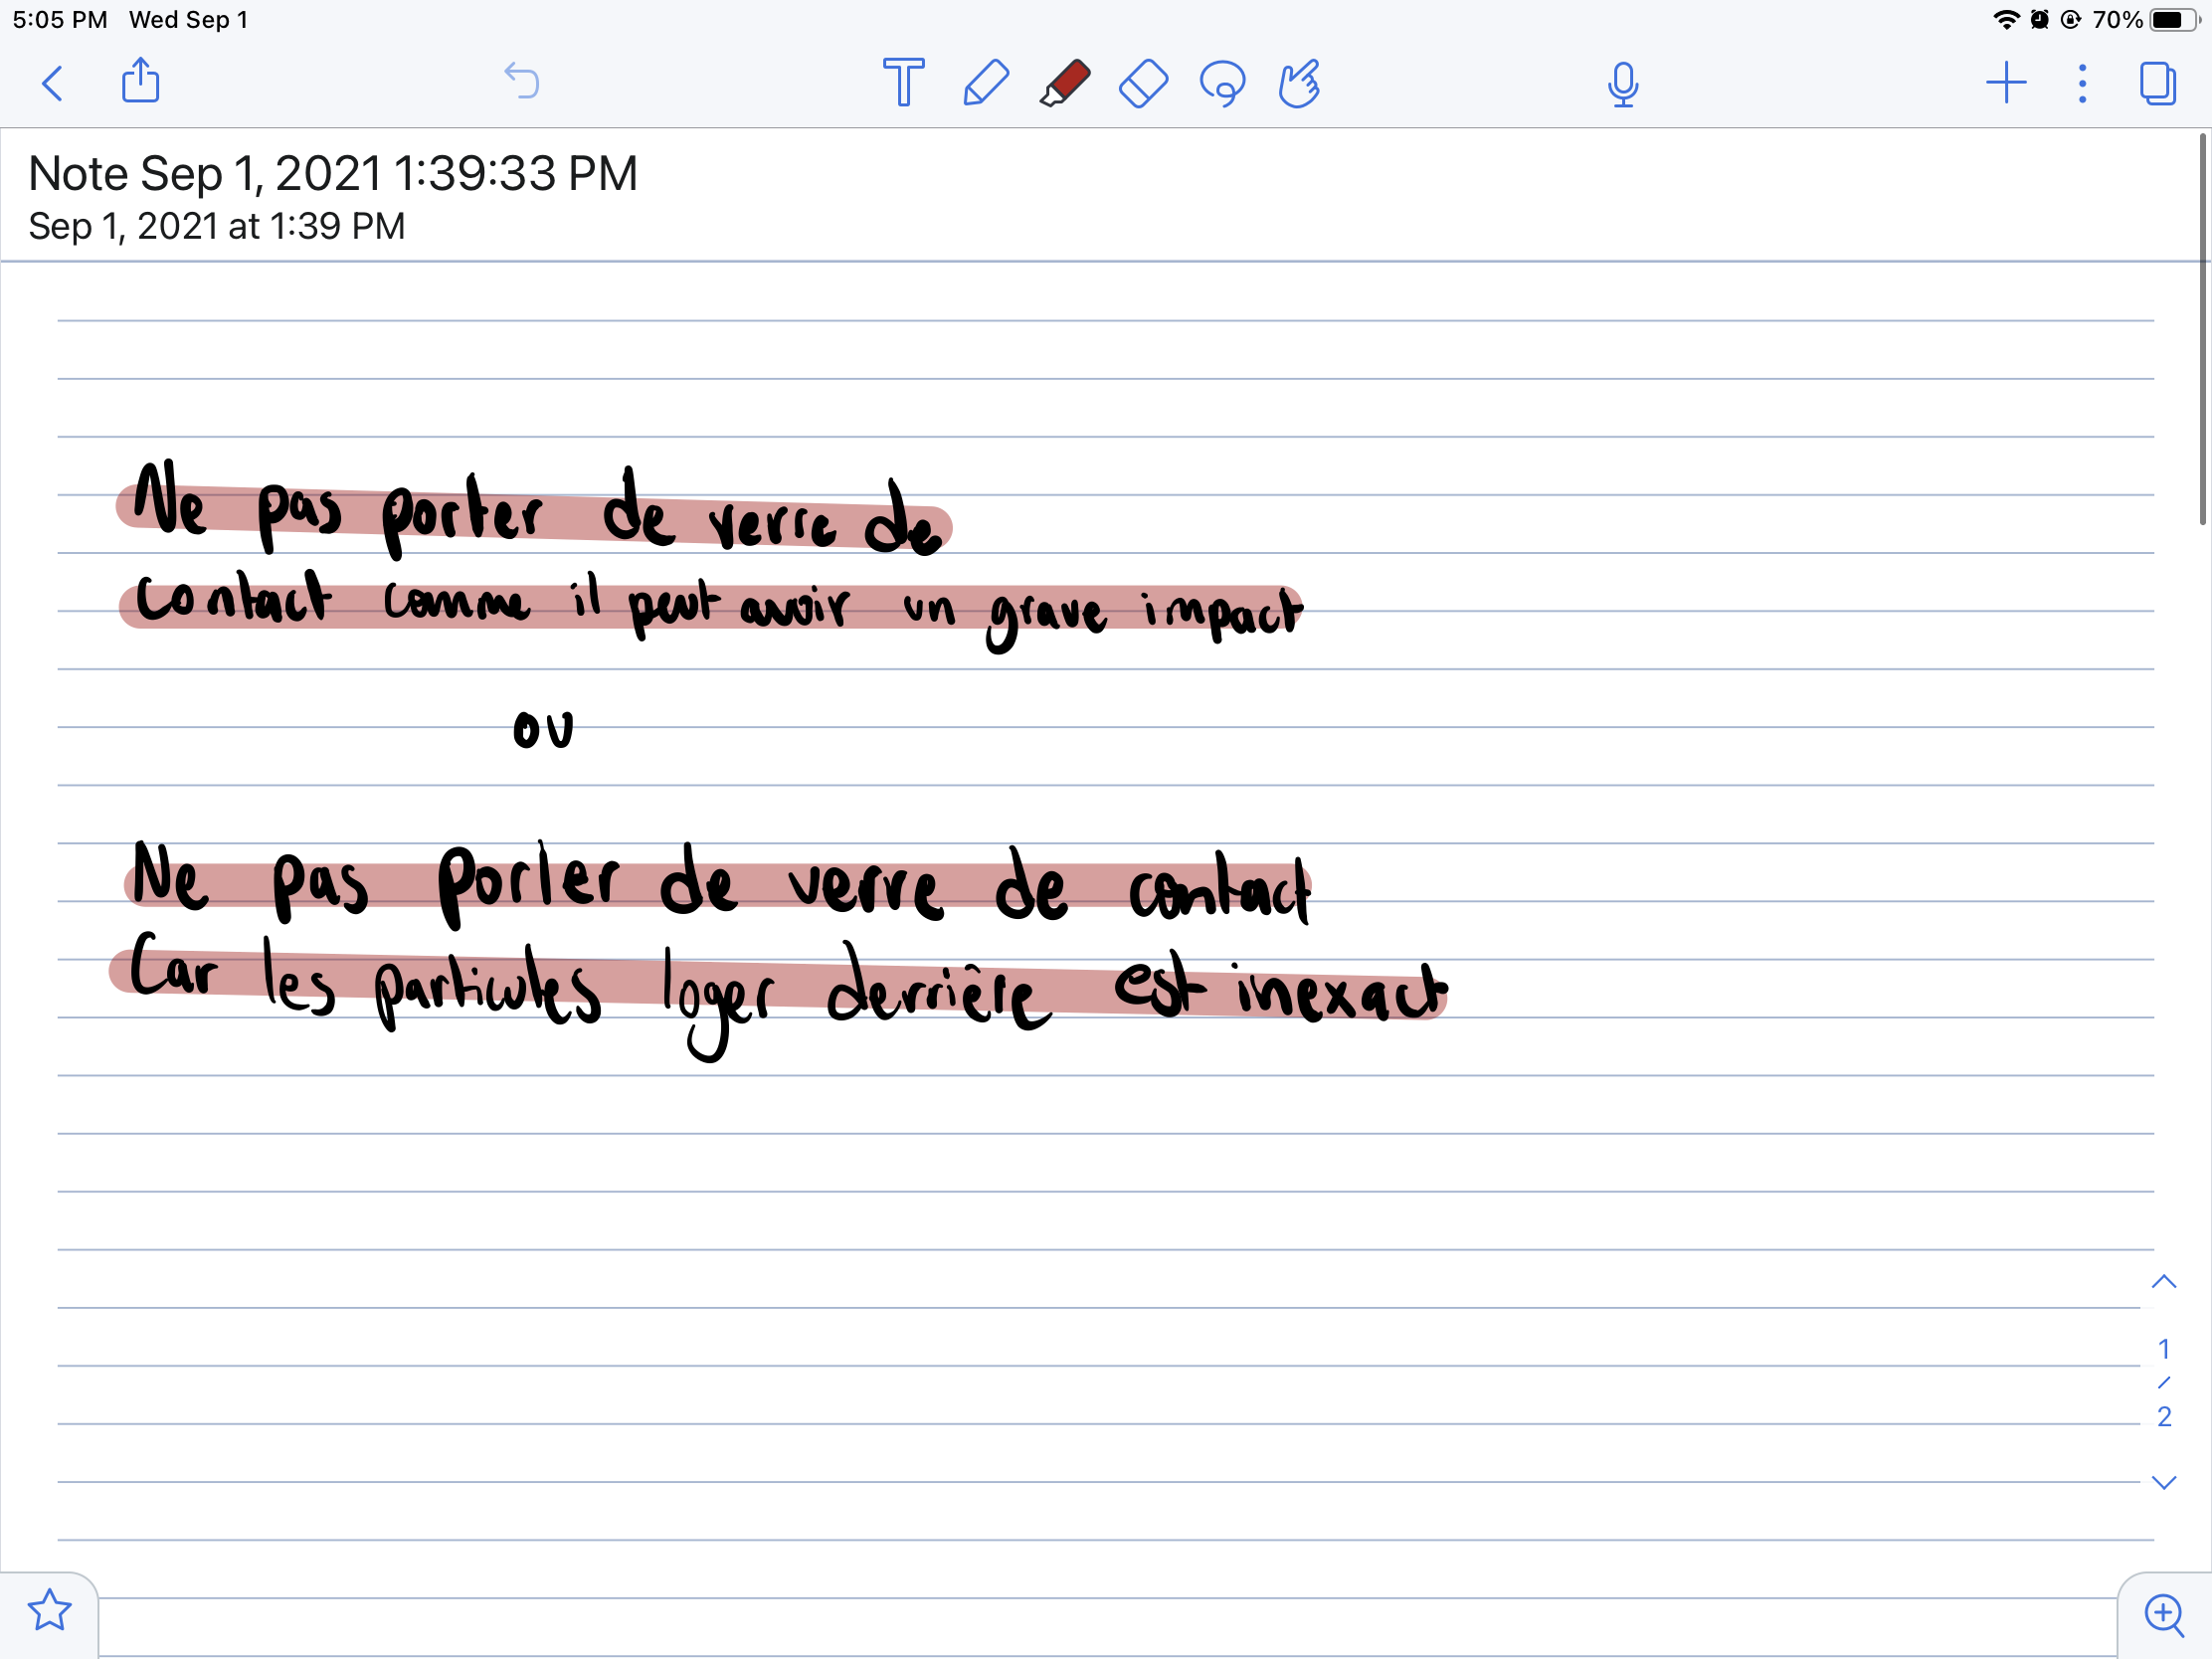 5:05 PM Wed Sep 1 70%
Note Sep 1, 2021 1:39:33 PM
Sep 1, 2021 at 1:39 PM
Ne pas porter de verre de
contact comme il peut avoir un grave impact
ou
Ne pas Porter de verre de contact
Car les particules loger derrière est inexact
1
/
2